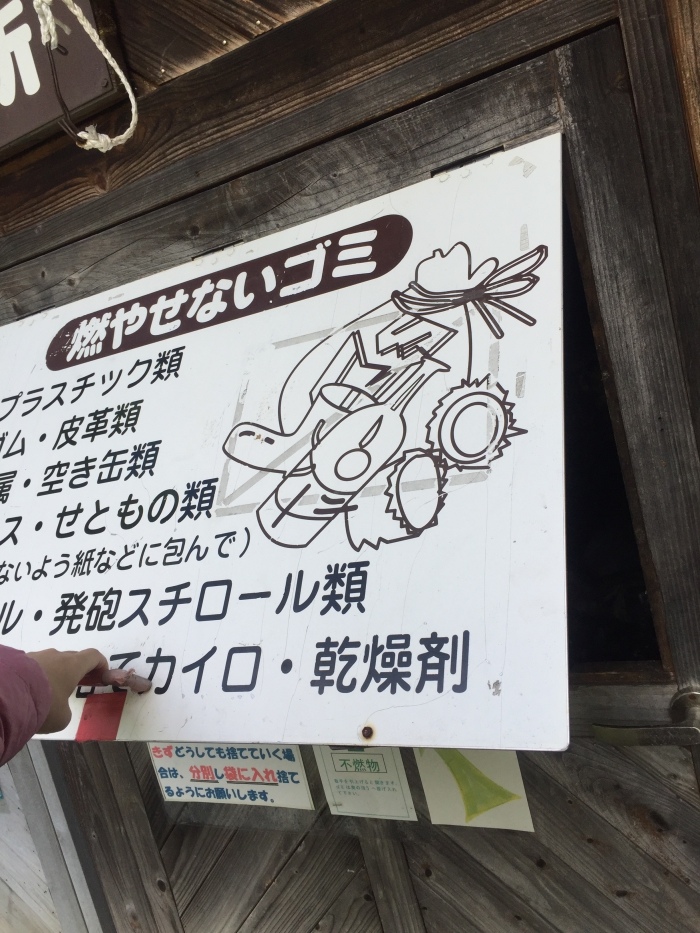 所
燃やせないゴミ
プラスチック類
ム・皮革類
属・空き缶類
ス・せともの類
ないよう紙などに包んで)
ル・発砲スチロール類
てカイロ・乾燥剤
きずどうしても捨てていく場
合は、分別し袋に入れ捨て
るようにお願いします。
不燃物